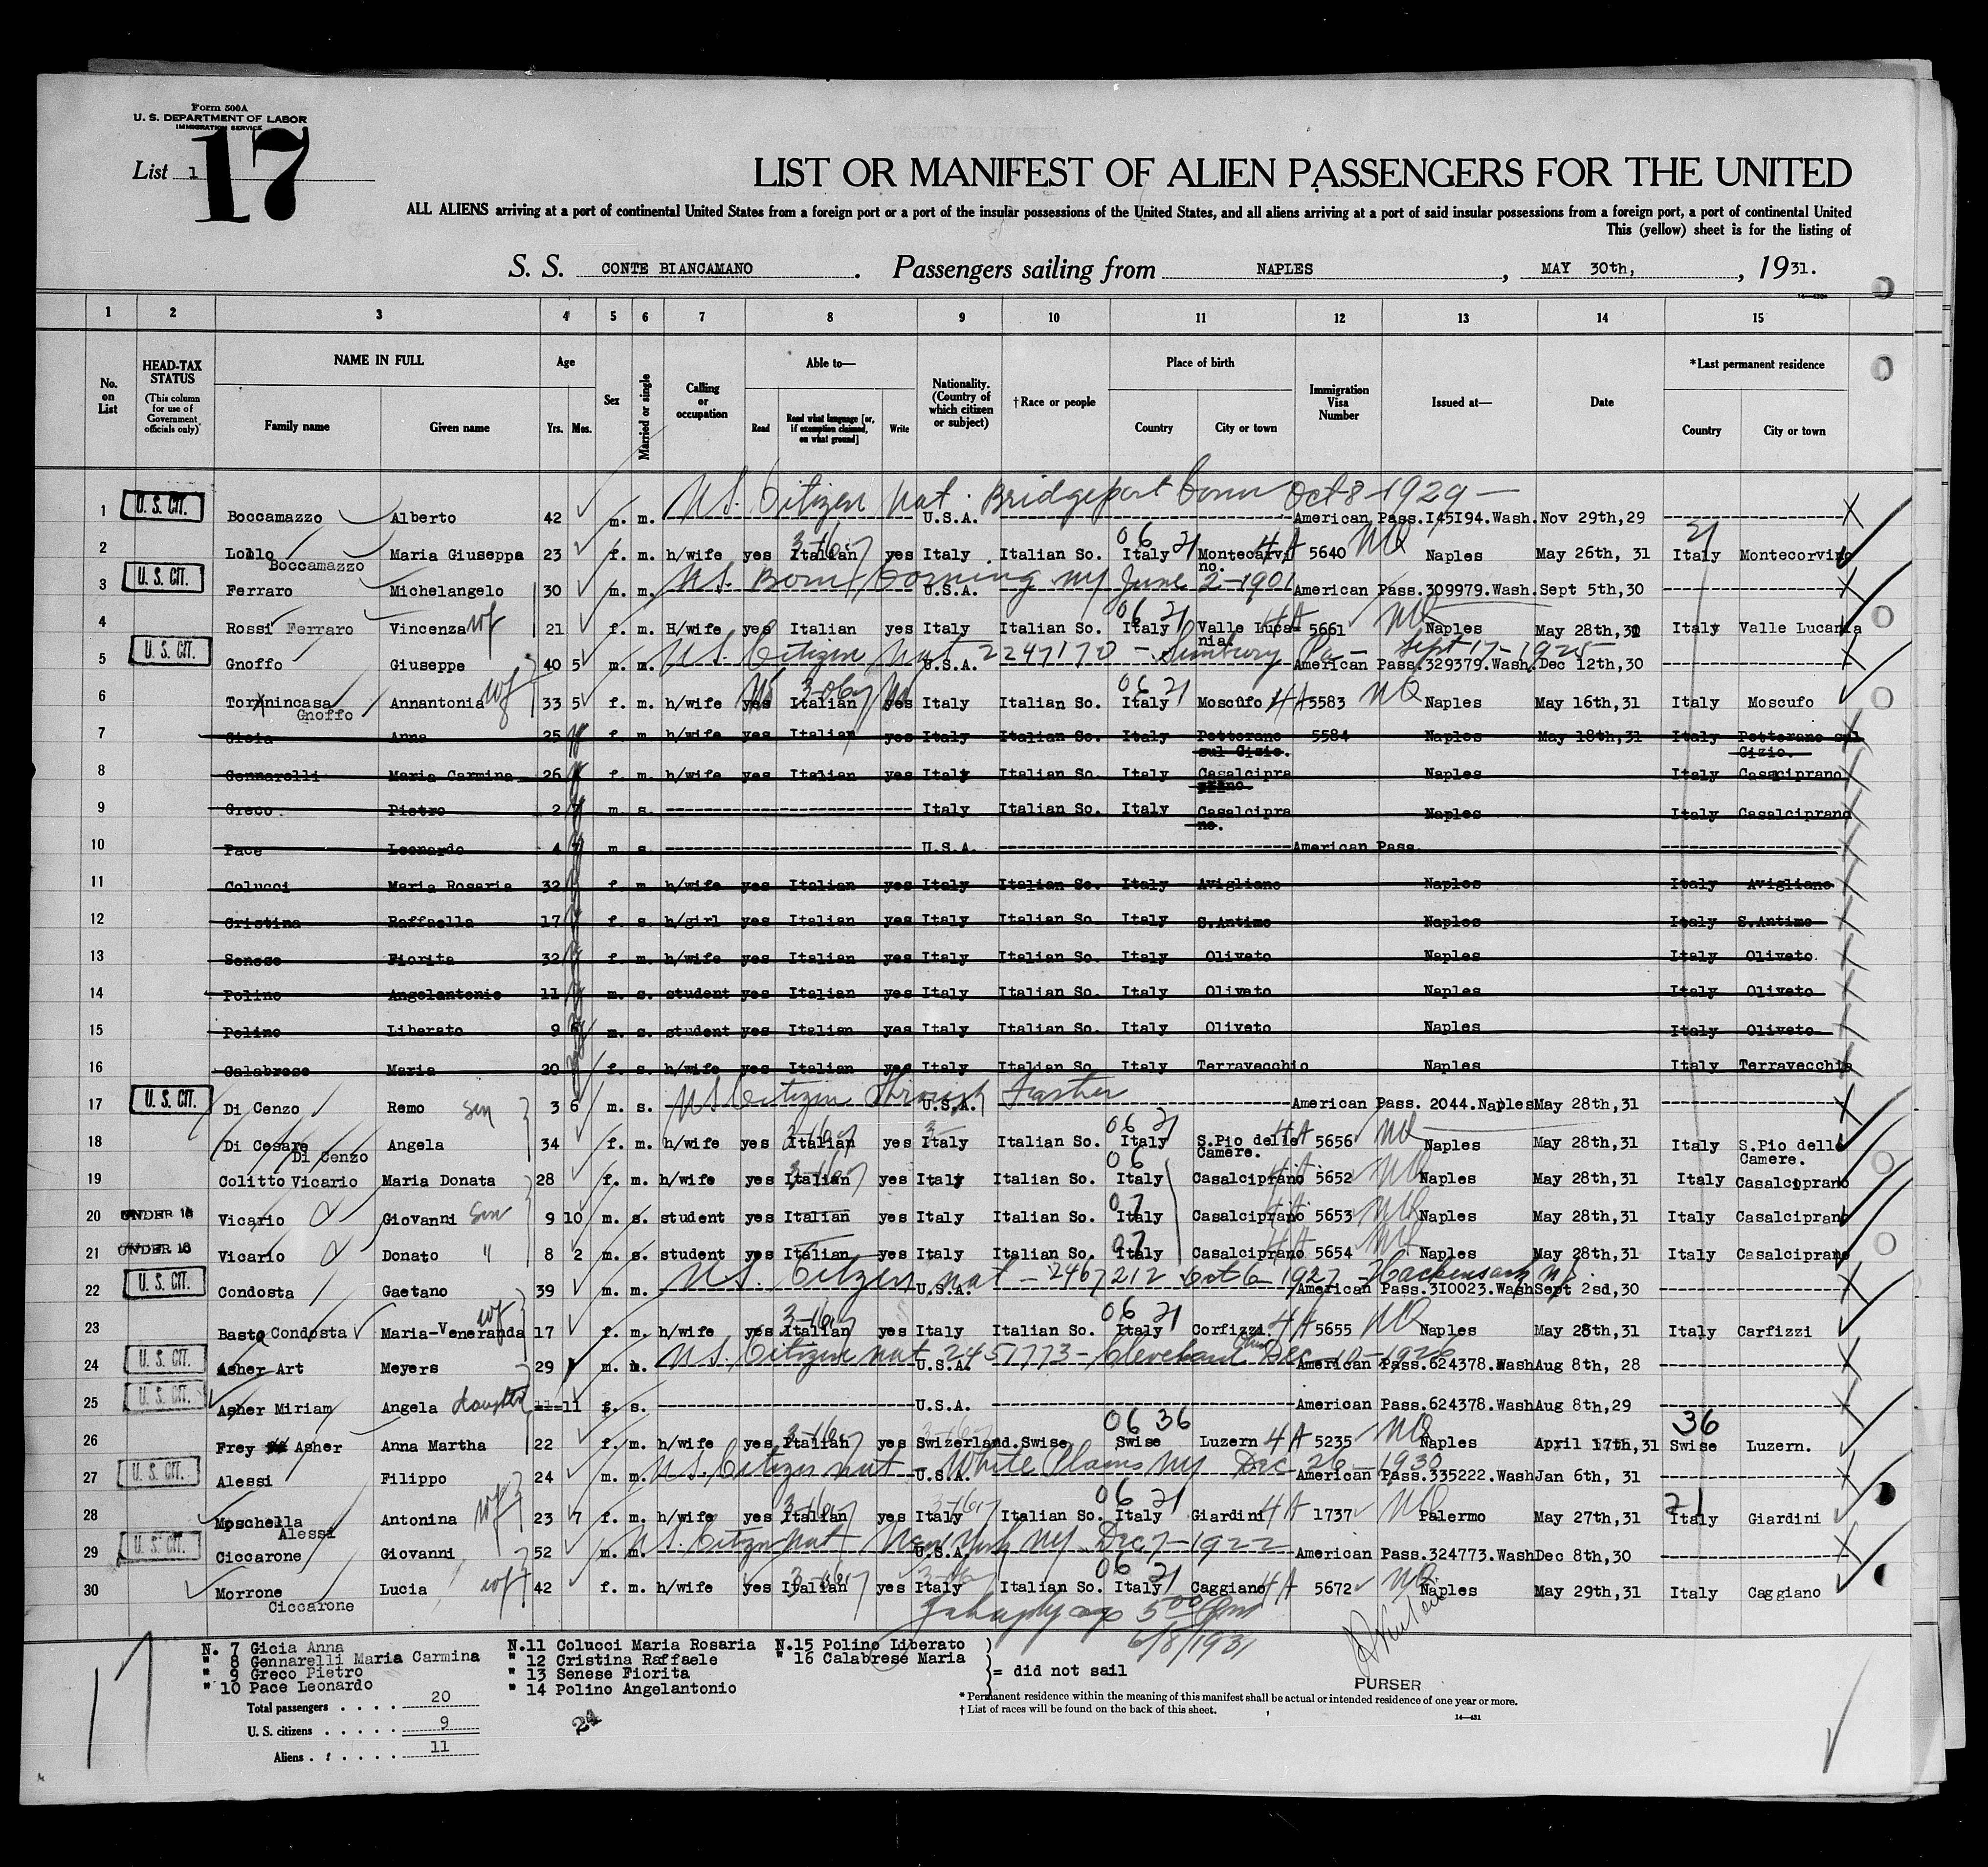 Form 500A
U. S. DEPARTMENT OF LABOR
IMMIGRATION SERVICE
List 1
17
LIST OR MANIFEST OF ALIEN PASSENGERS FOR THE UNITED
ALL ALIENS arriving at a port of continental United States from a foreign port or a port of the insular possessions of the United States, and all aliens arriving at a port of said insular possessions from a foreign port, a port of continental United
This (yellow) sheet is for the listing of
S. S. CONTE BIANCAMANO. Passengers sailing from NAPLES, MAY 30th, 1931.
1 2 3 4 5 6 7 8 9 10 11 12 13 14 15
No. on List
HEAD-TAX STATUS (This column for use of Government officials only)
NAME IN FULL Family name Given name
Age Yrs. Mos.
Sex
Married or single
Calling or occupation
Able to— Read Read what language [or, if exemption claimed, on what ground] Write
Nationality. (Country of which citizen or subject)
†Race or people
Place of birth Country City or town
Immigration Visa Number
Issued at—
Date
*Last permanent residence Country City or town
U.S. Citizen Nat. Bridgeport Conn Oct-8-1929—
1 U. S. CIT. Boccamazzo Alberto 42 m. m. U.S.A. American Pass.I45I94.Wash. Nov 29th,29
2 Lollo Boccamazzo Maria Giuseppa 23 f. m. h/wife yes Italian yes Italy Italian So. Italy 06 21 Montecorvi no. 4A 5640 NQ Naples May 26th, 31 Italy Montecorvino
U.S. Born Corning NY June 2-1901
3 U. S. CIT. Ferraro Michelangelo 30 m. m. U.S.A. American Pass.309979.Wash. Sept 5th,30
4 Rossi Ferraro Vincenza wf 21 f. m. H/wife yes Italian yes Italy Italian So. Italy 06 21 Valle Luca= nia 4A 5661 NQ Naples May 28th,31 Italy Valle Lucania
U.S. Citizen Nat 2247170 - Sunbury Pa- Sept 17-1925
5 U. S. CIT. Gnoffo Giuseppe 40 5 m. m. U.S.A. American Pass.329379.Wash. Dec 12th,30
6 Torrnincasa Gnoffo Annantonia wf 33 5 f. m. h/wife yes Italian yes Italy Italian So. Italy 06 21 Moscufo 4A 5583 NQ Naples May 16th,31 Italy Moscufo
7 Gicia Anna 25 f. m. h/wife yes Italian yes Italy Italian So. Italy Pettorano sul Gizio. 5584 Naples May 18th,31 Italy Pettorano sul Gizio.
8 Gennarelli Maria Carmina 26 f. m. h/wife yes Italian yes Italy Italian So. Italy Casalcipra Naples Italy Casaciprano
9 Greco Pietro 2 m. s. Italy Italian So. Italy Casalcipra no. Naples Italy Casalciprano
10 Pace Leonardo 4 m. s. U.S.A. American Pass.
11 Colucci Maria Rosaria 32 f. m. h/wife yes Italian yes Italy Italian So. Italy Avigliano Naples Italy Avigliano
12 Cristina Raffaella 17 f. s. h/girl yes Italian yes Italy Italian So. Italy S.Antimo Naples Italy S.Antimo
13 Senese Fiorita 32 f. m. h/wife yes Italian yes Italy Italian So. Italy Oliveto Naples Italy Oliveto.
14 Polino Angelantonio 11 m. s. student yes Italian yes Italy Italian So. Italy Oliveto Naples Italy Oliveto
15 Polino Liberato 9 6 m. s. student yes Italian yes Italy Italian So. Italy Oliveto Naples Italy Oliveto
16 Calabrese Maria 20 f. s. h/wife yes Italian yes Italy Italian So. Italy Terravecchio Naples Italy Terravecchia
U.S Citizen Through Father
17 U. S. CIT. Di Cenzo Remo son 3 6 m. s. U.S.A. American Pass. 2044.Naples May 28th,31
18 Di Cesare Di Cenzo Angela 34 f. m. h/wife yes Italian yes Italy Italian So. Italy 06 21 S.Pio delle Camere. 4A 5656 NQ Naples May 28th,31 Italy S.Pio delle Camere.
19 Colitto Vicario Maria Donata 28 f. m. h/wife yes Italian yes Italy Italian So. Italy 06 Casalciprano 4A 5652 NQ Naples May 28th,31 Italy Casalciprano
20 UNDER 16 Vicario Giovanni Son 9 10 m. s. student yes Italian yes Italy Italian So. Italy 07 Casalciprano 4A 5653 NQ Naples May 28th,31 Italy Casalciprano
21 UNDER 16 Vicario Donato " 8 2 m. s. student yes Italian yes Italy Italian So. Italy 07 Casalciprano 4A 5654 NQ Naples May 28th,31 Italy Casalciprano
U.S. Citizen nat - 2467212 Oct 6-1927 - Hackensack NJ
22 U. S. CIT. Condosta Gaetano 39 m. m. U.S.A. American Pass.3I0023.Wash Sept 2sd,30
23 Basta Condosta Maria-Veneranda wf 17 f. m. h/wife yes Italian yes Italy Italian So. Italy 06 21 Corfizzi 4A 5655 NQ Naples May 28th,31 Italy Carfizzi
U.S. Citizen nat 2451773- Cleveland Ohio Dec-10-1926
24 U. S. CIT. Asher Art Meyers 29 m. m. U.S.A. American Pass.624378.Wash Aug 8th, 28
25 U. S. CIT. Asher Miriam Angela daughter 11 f. s. U.S.A. American Pass.624378.Wash Aug 8th,29
26 Frey Asher Anna Martha 22 f. m. h/wife yes Italian yes Swizerland. Swise Swise 06 36 Luzern 4A 5235 NQ Naples April 17th,31 36 Swise Luzern.
U.S. Citizen nat - White Plains NY Dec 26-1930
27 U. S. CIT. Alessi Filippo 24 m. m. U.S.A. American Pass.335222.Wash Jan 6th, 31
28 Moschella Alessi Antonina wf 23 7 f. m. h/wife yes Italian yes Italy Italian So. Italy 06 21 Giardini 4A 1737 NQ Palermo May 27th,31 21 Italy Giardini
U.S. Citizen nat - New York NY Dec 7-1922
29 U. S. CIT. Ciccarone Giovanni 52 m. m. U.S.A. American Pass.324773.Wash Dec 8th,30
30 Morrone Ciccarone Lucia wf 42 f. m. h/wife yes Italian yes Italy Italian So. Italy 06 21 Caggiano 4A 5672 NQ Naples May 29th,31 Italy Caggiano
6/8/1931
N. 7 Gicia Anna
" 8 Gennarelli Maria Carmina
" 9 Greco Pietro
" 10 Pace Leonardo
N.11 Colucci Maria Rosaria
" 12 Cristina Raffaele
" 13 Senese Fiorita
" 14 Polino Angelantonio
N.15 Polino Liberato
" 16 Calabrese Maria
= did not sail
PURSER
Total passengers . . . . 20
U. S. citizens . . . . . 9
Aliens . . . . . . 11
24
* Permanent residence within the meaning of this manifest shall be actual or intended residence of one year or more.
† List of races will be found on the back of this sheet.
14—431